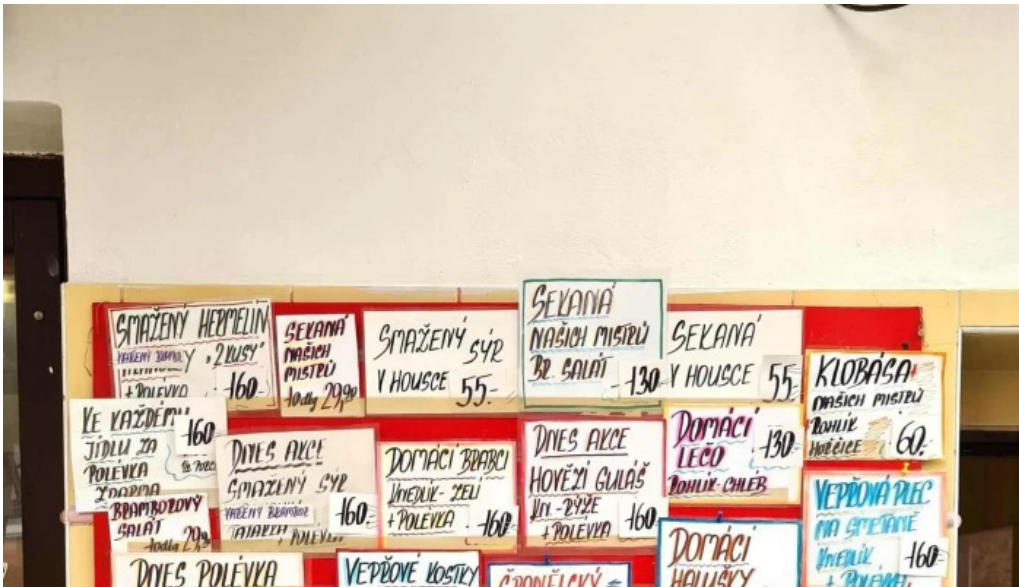 SMAŽENÝ HERMELIN
VAŘENÝ
"2 KUSY"
+ POLÉVKA 160.-
SEKANÁ
NAŠICH
MISTRŮ
10dkg 29,90
SMAŽENÝ SÝR
V HOUSCE 55.-
SEKANÁ
NAŠICH MISTRŮ
BR. SALÁT 130.-
SEKANÁ
V HOUSCE 55.-
KLOBÁSA
NAŠICH MISTRŮ
ROHLÍK
HOŘČICE 60.-
KE KAŽDÉMU
JÍDLU ZA 160
POLÉVKA
ZDARMA
DNES AKCE
SMAŽENÝ SÝR
VAŘENÝ BRAMBOR
+ POLÉVKA 160.-
DOMÁCÍ BRABCI
KNEDLÍK - ZELÍ
+ POLÉVKA 160.-
DNES AKCE
HOVĚZÍ GULÁŠ
KN - RÝŽE
+ POLÉVKA 160.-
DOMÁCÍ
LEČO 130.-
ROHLÍK - CHLÉB
VEPŘOVÁ PLEC
NA SMETANĚ
KNEDLÍK
+ POLÉVKA 160.-
BRAMBOROVÝ
SALÁT
10dkg 29,90
DNES POLÉVKA
VEPŘOVÉ KOSTKY
ŠPANĚLSKÝ
DOMÁCÍ
HALUŠKY